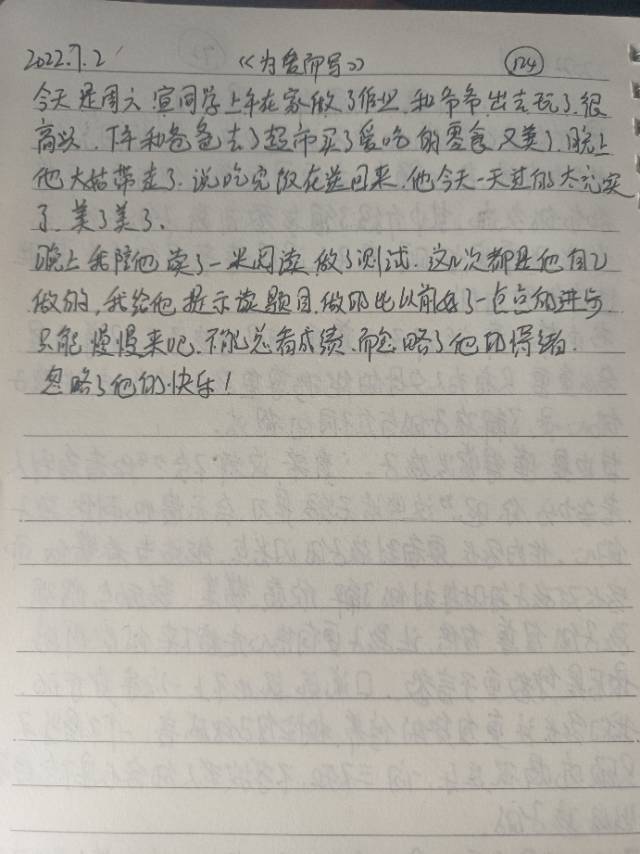 2022.7.2 《为爱而写》 124
今天是周六 宣同学上午在家做了作业,和爷爷出去玩了,很
高兴,下午和爸爸去了超市买了爱吃的零食,又美了,晚上
他大姑带走了,说吃完饭在送回来,他今天一天过的太充实
了,美了美了,
晚上我陪他读了一米阅读,做了测试,这几次都是他自己
做的,我给他提示读题目,做的比以前好了一点点的进步
只能慢慢来吧,不能总看成绩,而忽略了他的情绪,
忽略了他的快乐!